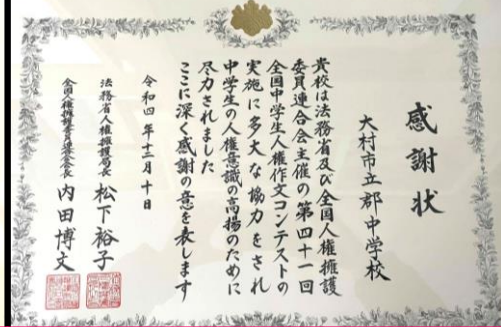 感謝状
大村市立郡中学校
貴校は法務省及び全国人権擁護
委員連合会主催の第四十一回
全国中学生人権作文コンテストの
実施に多大な協力をされ
中学生の人権意識の高揚のために
尽力されました
ここに深く感謝の意を表します
令和四年十二月十日
法務省人権擁護局長 松下裕子
全国人権擁護委員連合会長 内田博文